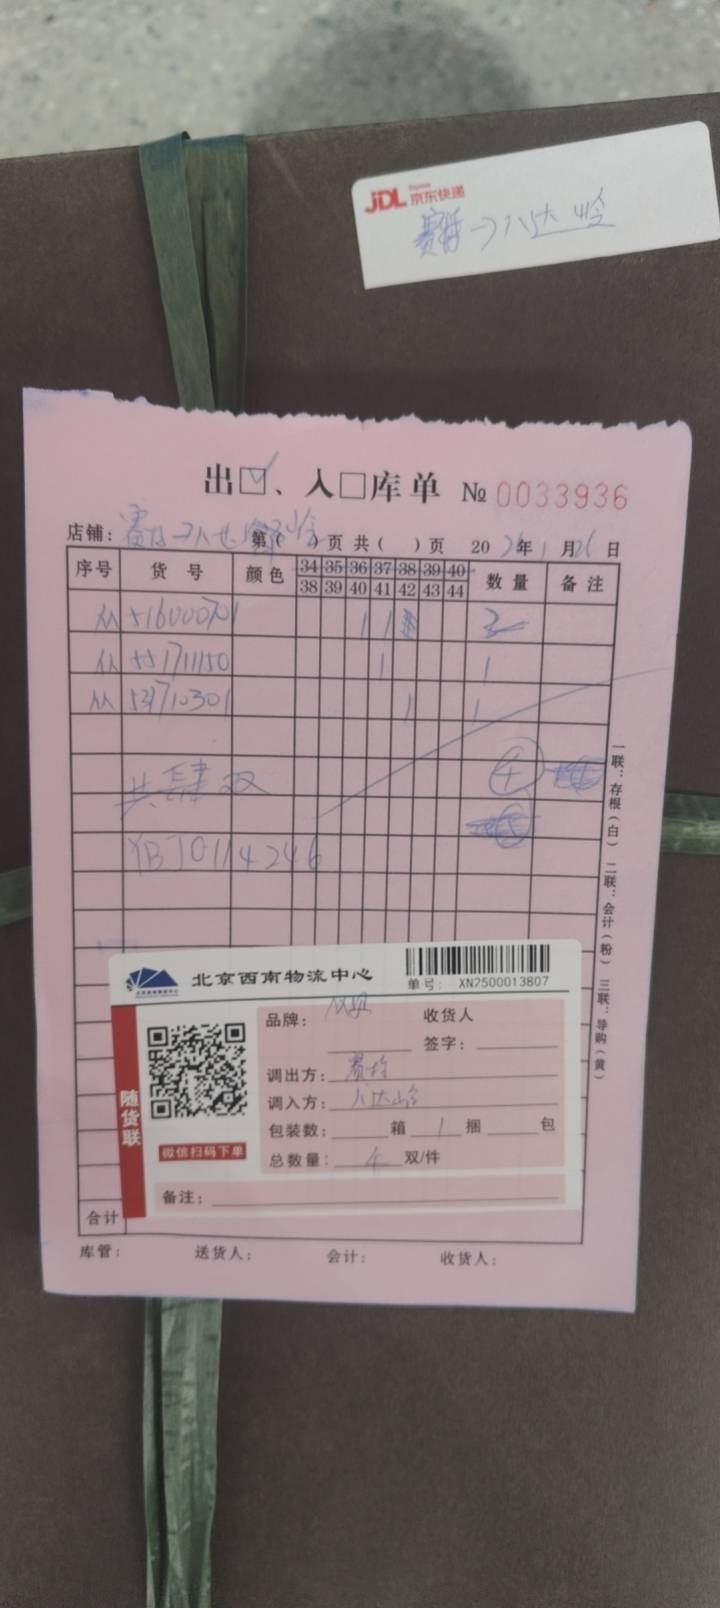 JDL 京东快递
赛特→八达岭
出☑、入□库单 № 0033936
店铺: 赛特→八达岭 第( )页 共( )页 20 年1月 日
序号 货号 颜色 34 35 36 37 38 39 40 数量 备注
38 39 40 41 42 43 44
从 51600701 1 1 2
从 1711150 1 1
从 1 1
共肆双 ④
YBJ0114246
北京西南物流中心
单号: XN2500013807
品牌: 收货人
签字:
调出方: 赛特
调入方: 八达岭
包装数: 箱 1 捆 包
总数量: 4 双/件
备注:
随货联
微信扫码下单
合计
库管: 送货人: 会计: 收货人:
一联:存根(白) 二联:会计(粉) 三联:导购(黄)